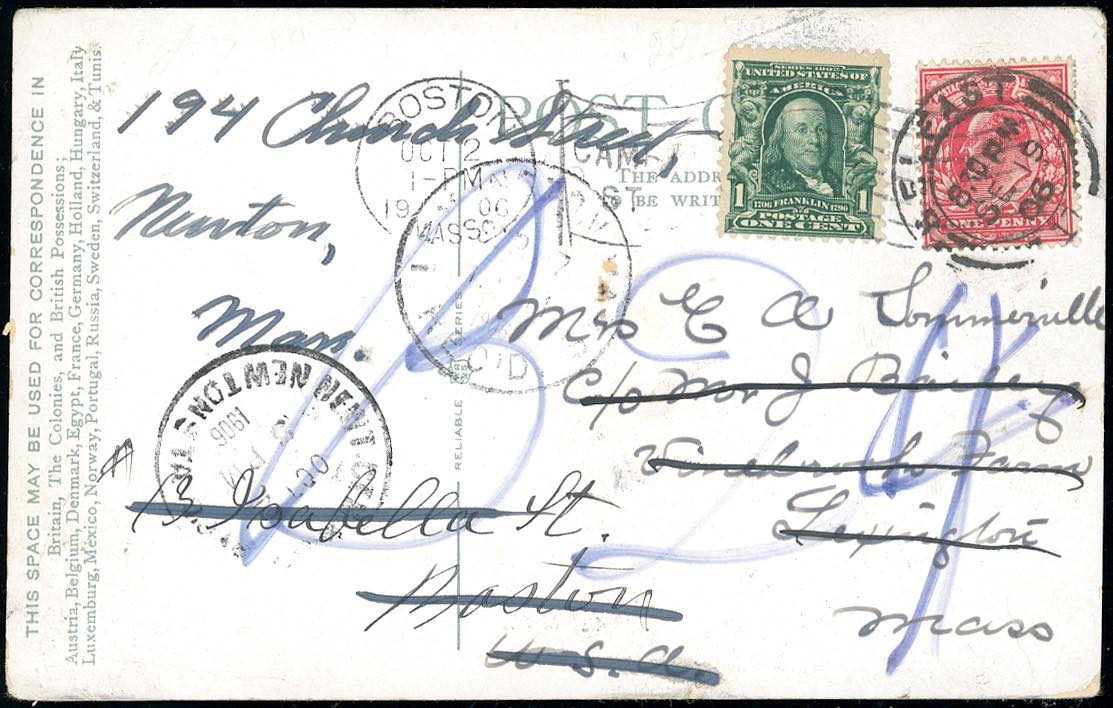 THIS SPACE MAY BE USED FOR CORRESPONDENCE IN
Britain, The Colonies, and British Possessions;
Austria, Belgium, Denmark, Egypt, France, Germany, Holland, Hungary, Italy
Luxemburg, México, Norway, Portugal, Russia, Sweden, Switzerland, & Tunis.
194 Church Street,
Newton,
Mass.
POST C
THE ADDR
TO BE WRIT
RELIABLE SERIES
BOSTON
OCT 2
1-PM
19
MASS
REC'D
SERIES 1902
UNITED STATES OF
AMERICA
1 1
1706 FRANKLIN 1790
POSTAGE
ONE CENT
BELFAST
8.0 PM
06
POSTAGE
ONE PENNY
Mrs E A Sommerville
c/o Mr J Bailey
Farm
Lexington
Mass
NEWTON
1906
PM
OCT
3 Isabella St.
Boston
U.S.A.